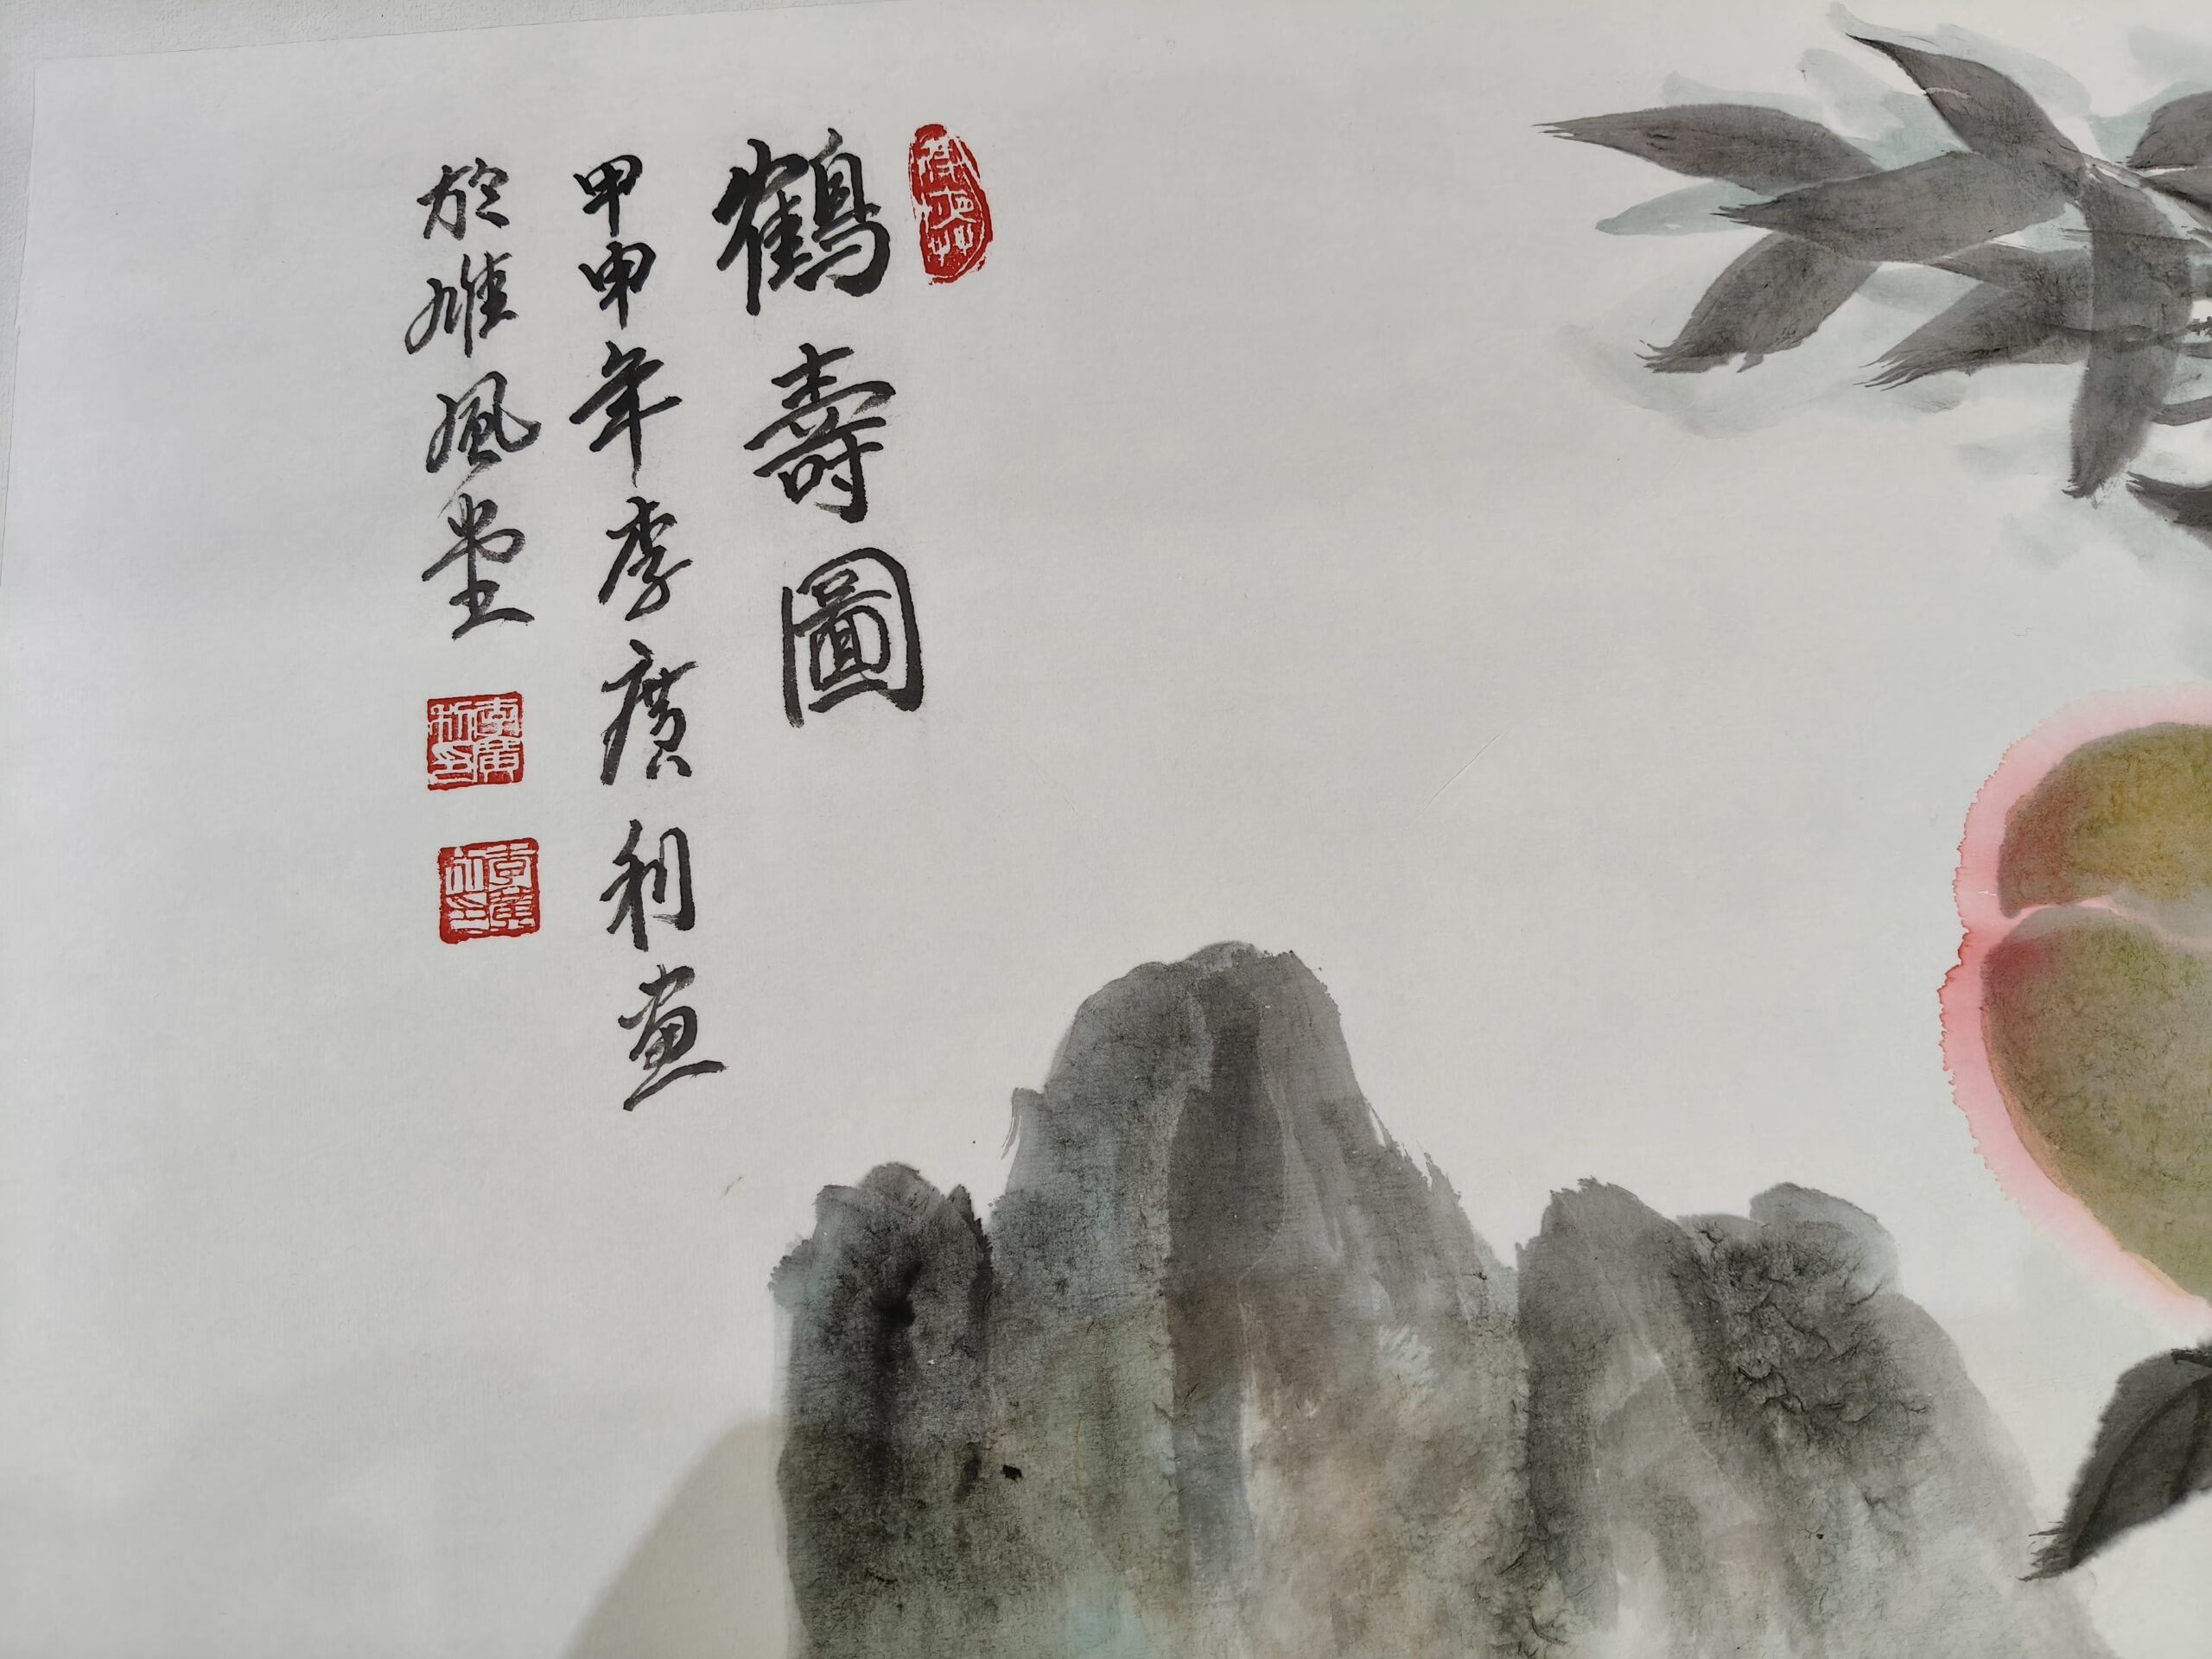 鶴壽圖
甲申年李廣利畫
於雄風堂
李廣利印